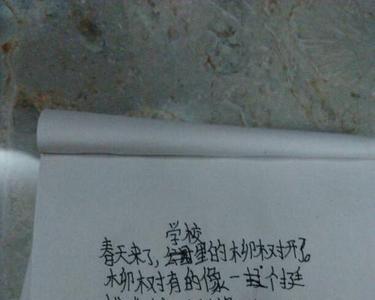 学校
春天来了,里的柳树开了。
柳树有的像一个挺